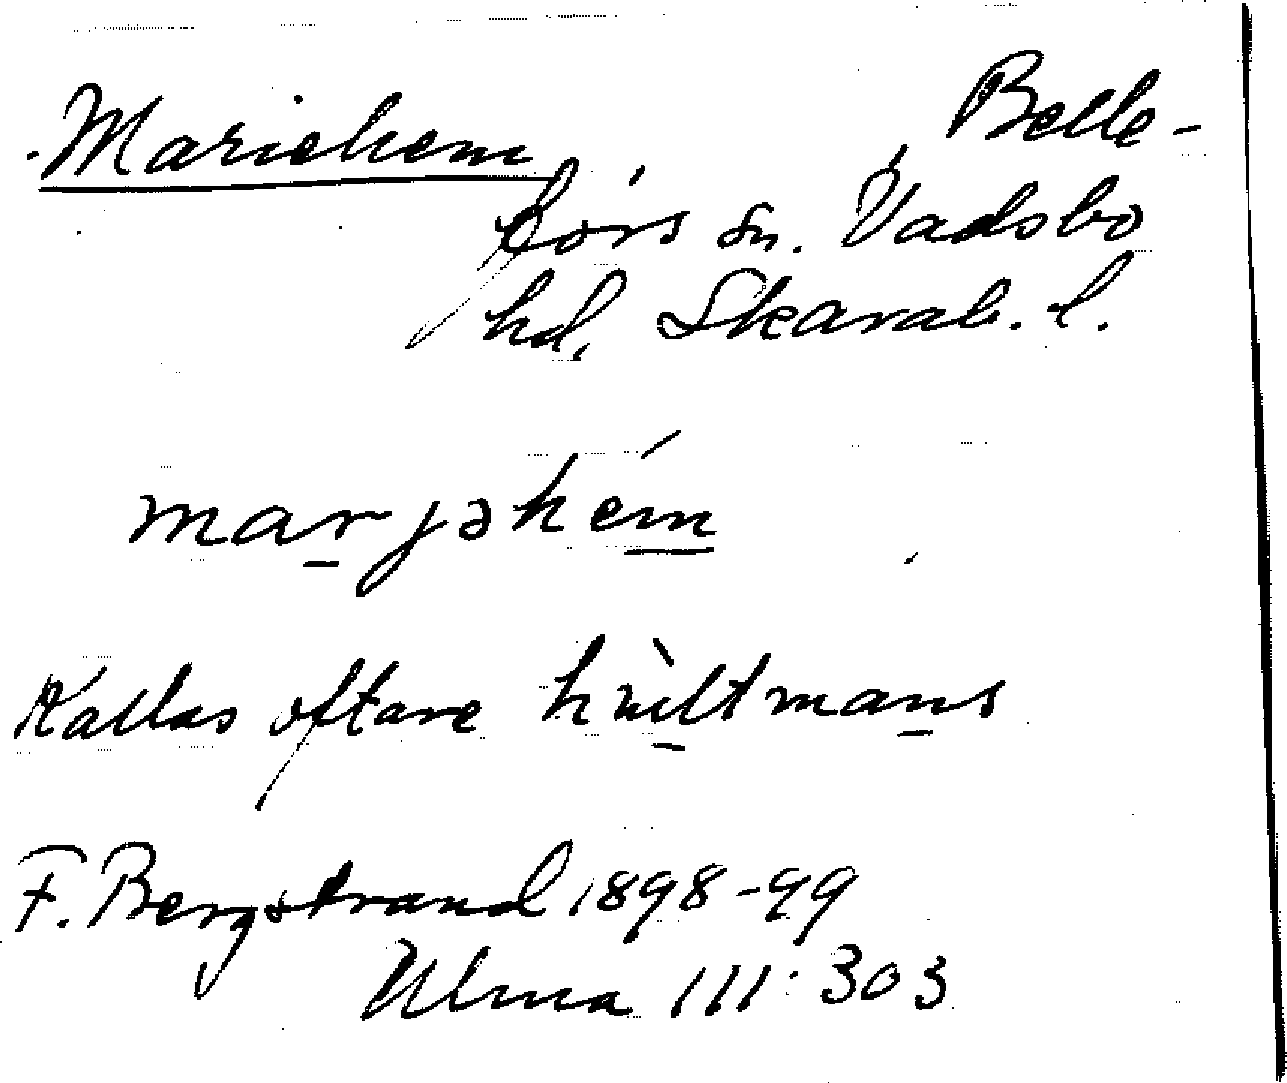 Mariehem Belle-
fors sn. Vadsbo
hd. Skarab. l.
marjəhém
Kallas oftare hùltmans
F. Bergstrand 1898-99
Ulma 111:303